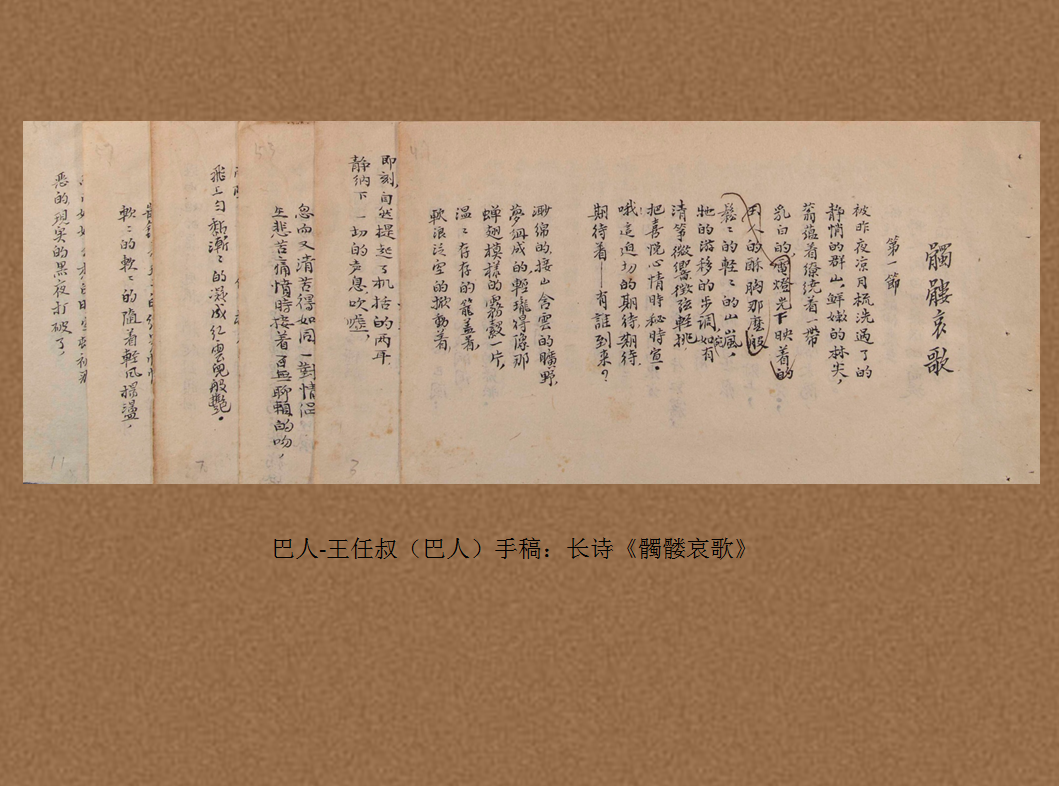 髑髏哀歌
第一節
被昨夜凉月梳洗過了的
静悄的群山，鮮嫩的林尖，
蓊蕴着繚绕着一帶
乳白的，電燈光下映着的
的酥胸那麼般
鬆〻的輕〻的山嵐，
牠的游移的步調，如有
清箏微響，微弦輕挑
把喜悦心情時秘時宣。
哦這迫切的期待，期待
期待着——有誰到来？
渺綿的接山含雲的曠野，
夢網成的輕瓏得像那
蝉翅模樣的霧縠一片，
温〻存存的籠盖着，
軟浪泛空的掀動着，
即刻自然提起了机括的两耳
静納下一切的声息，吹嘘，
忽而又清苦得如同一對情侣
生悲苦痛憤時接着百無聊賴的吻，
飛上匀新漸〻的凝成紅雲兒般艷。
軟〻的軟〻的随着輕風摇盪，
恶的現实的黑夜打破了，
3
7
11
巴人-王任叔（巴人）手稿：长诗《髑髅哀歌》